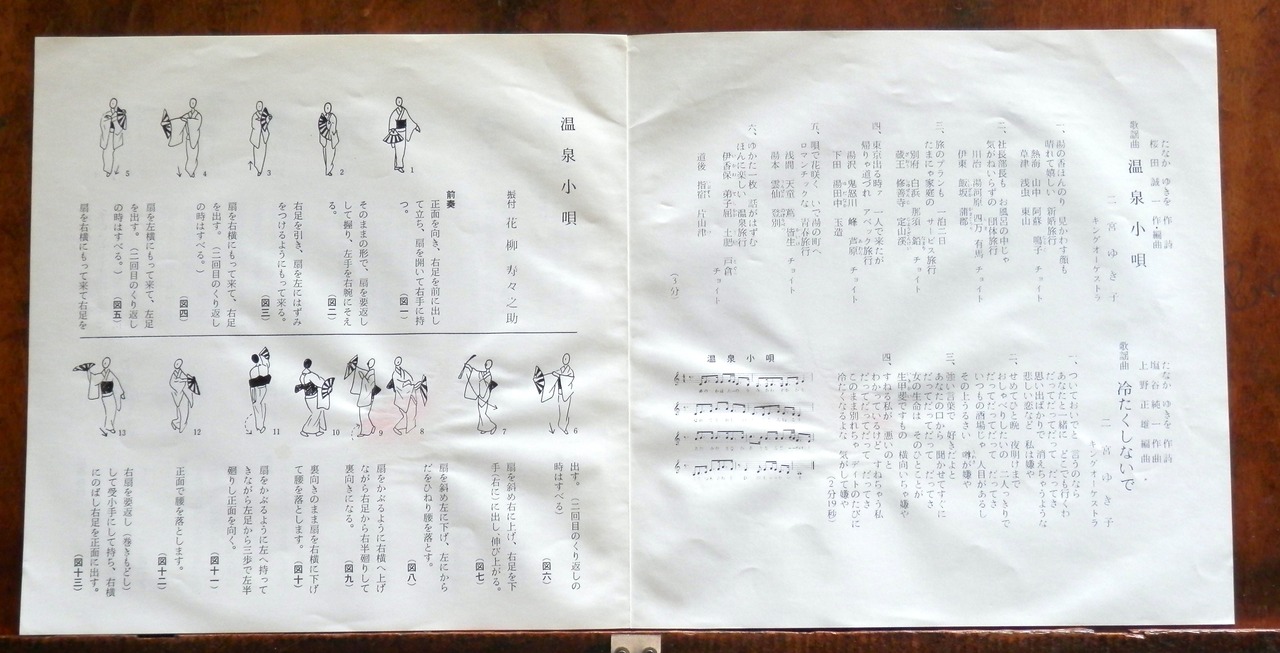 たなか ゆきを 作詩
桜田 誠一 作・編曲
歌謡曲 温泉小唄
二宮ゆき子
キングオーケストラ
一、湯の香ほんのり 見かわす顔も
晴れて嬉しい 新婚旅行
熱海 山中 阿蘇 鳴子 チョイト
草津 浅虫 東山
二、社長部長も お風呂の中じゃ
気がねいらずの 団体旅行
川治 湯河原 四万 有馬 チョイト
伊東 飯坂 蒲郡
三、旅のプランも 一泊二日
たまにゃ家庭の サービス旅行
別府 白浜 那須 鉛 チョイト
蔵王 修善寺 定山渓
四、東京出る時ァ 一人で来たが
帰りゃ道づれ アベック旅行
湯沢 鬼怒川 峰 芦原 チョイト
下田 湯田中 玉造
五、唄で花咲く いで湯の町へ
ロマンチックな 青春旅行
浅間 天童 蔦 皆生 チョイト
湯本 雲仙 登別
六、ゆかた一枚 話がはずむ
ほんに楽しい 温泉旅行
伊香保 弟子屈 土肥 戸倉 チョイト
道後 指宿 片山津
(3分)
たなか ゆきを 作詩
塩谷 純一 作曲
上野 正雄 編曲
歌謡曲 冷たくしないで
二宮ゆき子
キングオーケストラ
一、ついておいでと 言うのなら
あなたと一緒に どこでも行くわ
だってだってだって だってさ
思い出ばかりで 消えちゃうような
悲しい恋など 私は嫌や
二、せめてひと晩 夜明けまで
おしゃべりしたいの 二人っきりで
だってだってだって だってさ
いつもの酒場じゃ 人目があるし
その上うるさい 噂が嫌や
三、強い言葉で 好きだよと
あなたの口から 聞かせてすぐに
だってだってだって だってさ
女の生命は そのひとことが
生甲斐ですもの 横向いちゃ嫌や
四、すねる私が 悪いのと
わかっているけど すねちゃう私
だってだってだって だってさ
このまま別れちゃ デイトのたびに
冷たくなるよな 気がして嫌や
(2分19秒)
温泉小唄
温泉小唄
振付 花柳寿々之助
前奏
正面を向き、右足を前に出し
て立ち、扇を開いて右手に持
つ。 (図一)
そのままの形で、扇を要返し
して握り、左手を右腕にそえ
る。 (図二)
右足を引き、扇を左にはずみ
をつけるようにもって来る。
(図三)
扇を右横にもって来て、右足
を出す。(二回目のくり返し
の時はすべる。)
(図四)
扇を左横にもって来て、左足
を出す。(二回目のくり返し
の時はすべる。)
(図五)
扇を右横にもって来て右足を
1
2
3
4
5
出す。(二回目のくり返しの
時はすべる) (図六)
扇を斜め右に上げ、右足を下
手(右に)に出し、伸び上がる。
(図七)
扇を斜め左に下げ、左にから
だをひねり腰を落とす。
(図八)
扇をかぶるように右横へ上げ
ながら右足から右半廻りして
裏向きになる。 (図九)
裏向きのまま扇を右横に下げ
て腰を落とします。 (図十)
扇をかぶるように左へ持って
きながら左足から三歩で左半
廻りし正面を向く。
(図十一)
正面で腰を落とします。
(図十二)
右扇を要返し(巻きもどし)
して受小手にして持ち、右横
にのばし右足を正面に出す。
(図十三)
6
7
8
9
10
11
12
13